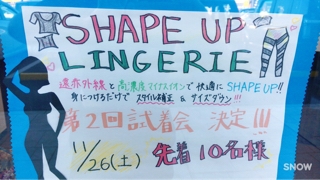 SHAPE UP
LINGERIE
遠赤外線と高濃度マイナスイオンで快適にSHAPE UP!!
身につけるだけでスタイル補正&サイズダウン!!!
第2回試着会 決定!!!
11/26(土) 先着10名様
SNOW